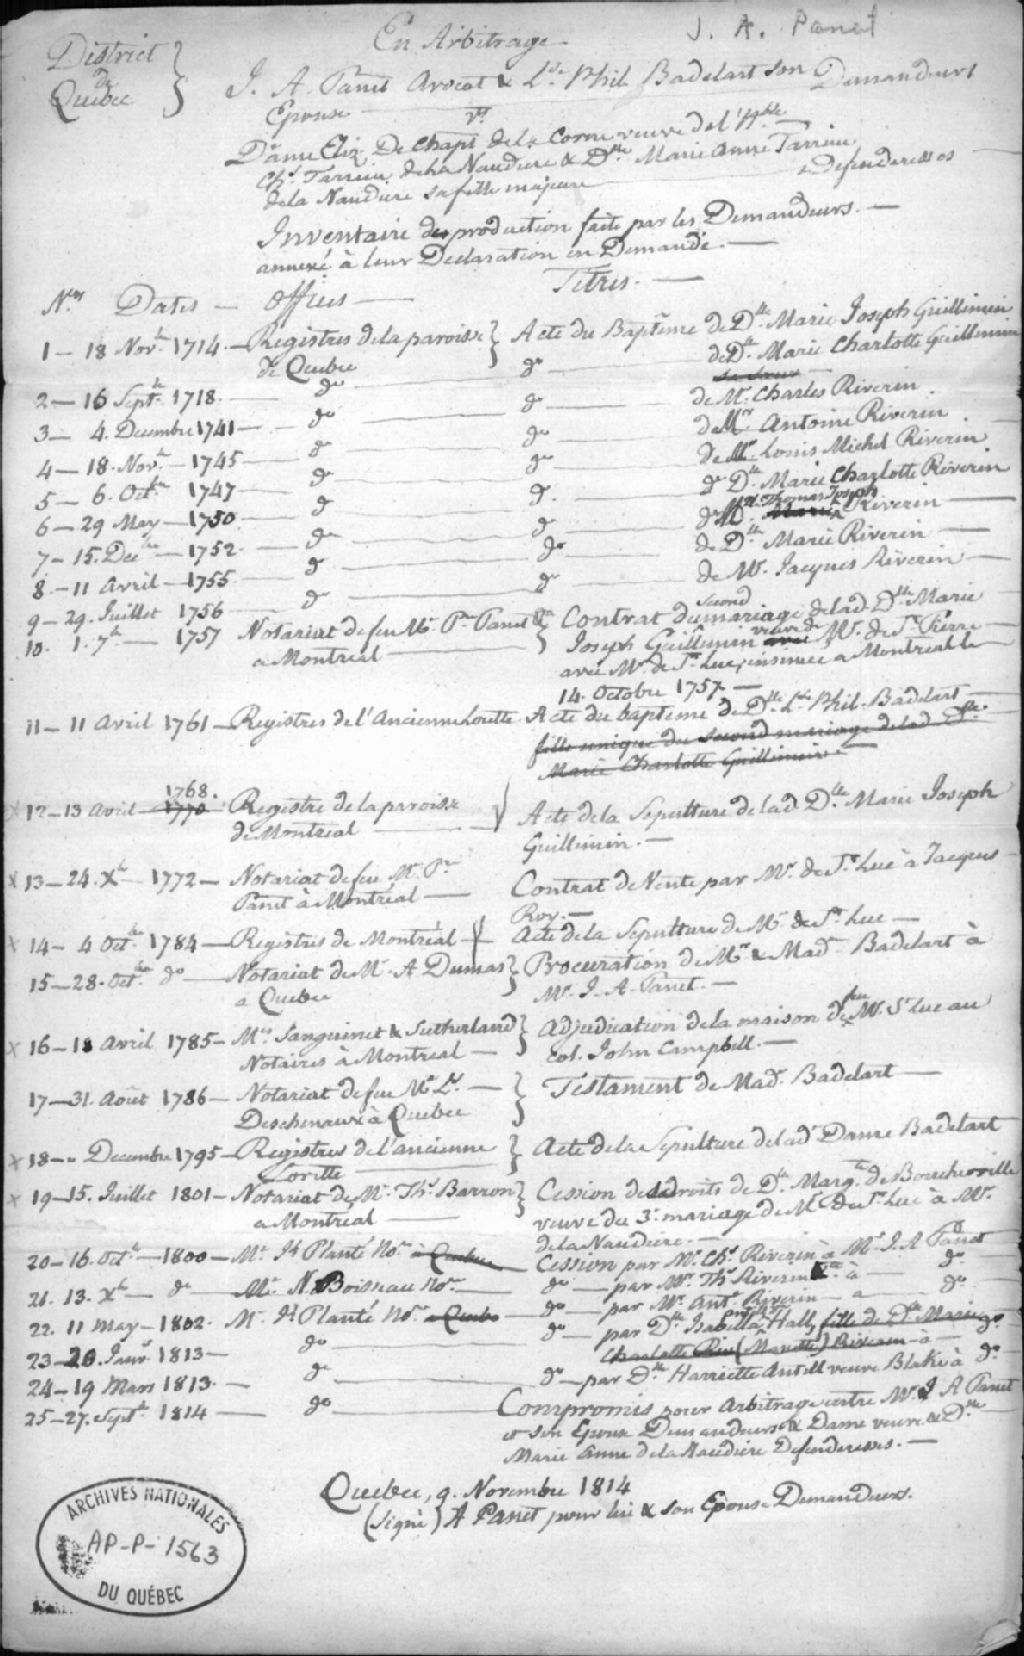 J. A. Panet
En Arbitrage
District
de
Quebec
J. A. Panet Avocat & Lse Phil Badelart son Demandeurs
Epouse
vs
Dame Eliz. De Chapt de la Corne veuve de l'Hble
Chs Tarrieu de la Naudiere & Dlle Marie Anne Tarrieu
de la Naudiere sa fille majeure Defenderesses
Inventaire des production faite par les Demandeurs. —
annexé à leur Declaration en Demande. —
Nos Dates — Offices — Titres. —
1 — 18 Novbre 1714. — Registres de la paroisse } Acte du Baptême de Dlle Marie Joseph Guillimin
de Quebec
2 — 16 Septbre 1718. — do — do — de Dlle Marie Charlotte Guillimin
sa soeur
3 — 4. Decembre 1741 — do — do — de Mr. Charles Riverin
4 — 18. Novr. — 1745 — do — do — de Mr Antoine Riverin
5 — 6. Octbre 1747 — do — do — de Mr Louis Michel Riverin
6 — 29 May — 1750 — do — do — de Dlle Marie Charlotte Riverin
7 — 15. Decbre — 1752. — do — do — de Mr. Thomas Joseph Marie Riverin
8. — 11 Avril — 1755 — do — do — de Dlle Marie Riverin —
9 — 29. Juillet 1756 — do — do — de Mr. Jacques Riverin
10. 1. 7bre — 1757 Notariat de feu Mr. Pre Panet } Contrat du second mariage de lad Dlle Marie
a Montreal — Joseph Guillimin veuve de Mr. de St Pierre
avec Mr. de St Luc, insinuée a Montreal le
14. Octobre 1757. —
11 — 11 Avril 1761 — Registres de l'Ancienne Lorette — Acte du baptême de Dlle Lse Phil. Badelart —
fille unique du second mariage de lad Dlle
Marie Charlotte Guillimin —
x 12 — 13 Avril — 1770 1768. Registre de la paroisse } Acte de la Sepulture de lad Dlle Marie Joseph
de Montreal — Guillimin. —
x 13 — 24. Xbre 1772 — Notariat de feu Mr. Pre Contrat de Vente par Mr. de St Luc à Jacques
Panet à Montréal — Roy. —
x 14 — 4 Octbre 1784 — Registres de Montréal — } Acte de la Sepulture de Mr. de St Luc —
15 — 28. Octbre do — Notariat de Mr. A Dumas } Procuration de Mr & Made Badelart à
a Quebec Mr. J. A. Panet. —
x 16 — 18 Avril 1785 — Mrs Sanguinet & Sutherland } Adjudication de la maison de feu Mr. St Luc au
Notaires à Montreal — Col. John Campbell. —
17 — 31. Août 1786 — Notariat de feu Mr Ls. — } Testament de Made. Badelart —
Descheneaux à Quebec
x 18 — " Decembre 1795 — Registres de l'ancienne } Acte de la Sepulture de lad Dame Badelart
Lorette —
x 19 — 15. Juillet 1801 — Notariat de Mr. Ths. Barron } Cession de droits de De Marg.te de Boucherville
a Montréal — veuve du 3e mariage de Mr de St Luc à Mr.
de la Naudiere. —
20 — 16. Octbre — 1800 — Mr. Jh Planté Nore à Quebec Cession par Mr. Chs. Riverin à Mr J. A Panet
21. 13. Xbre — do — Mr. N Boisseau Nore — do — par Mr. Ths Riverin à — do
22. 11 May — 1802. Mr. Jh Planté Nore a Quebec do — par Mr Ant. Riverin — a — do
23 — 20. Janvr 1813 — do — do — par Dlle Isabella Hall, fille de Dlle Marie
Charlotte Riv (Manette) Riverin à — do
24 — 19 Mars 1813. — do — do — par De Harriette Antill veuve Blake à do —
25 — 27. Septbre 1814 — do — Compromis pour arbitrage entre Mr J A Panet
et son Epouse Demandeurs & Dame veuve & Dlle
Marie Anne de la Naudiere Defenderesses. —
Quebec, 9. Novembre 1814
(signé) A Panet pour lui & son Epouse Demandeurs.
ARCHIVES NATIONALES
AP-P-1563
DU QUÉBEC